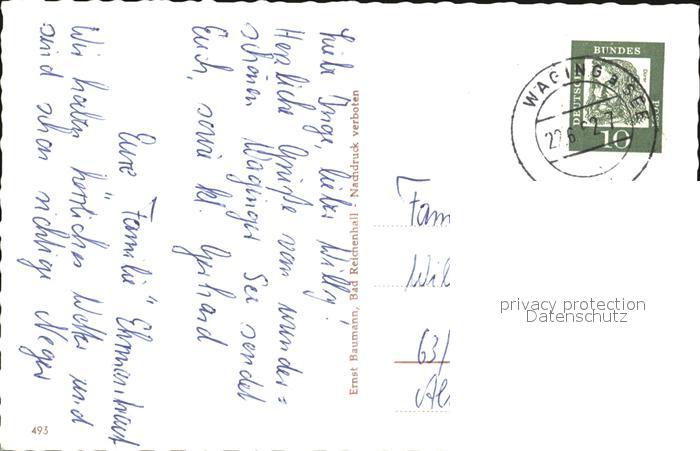 Liebe Inge, lieber Willy!
Herzliche Grüße vom wunder=
schönen Waginger See sendet
Euch, sowie kl. Gerhard
Eure Familie "Ehrmantraut
Wir haben herrliches Wetter und
sind schon richtige Neger
Ernst Baumann, Bad Reichenhall - Nachdruck verboten
493
BUNDES
DEUTSCHE
POST
10
WAGING a SEE
Fam
Wil
63/
privacy protection
Datenschutz